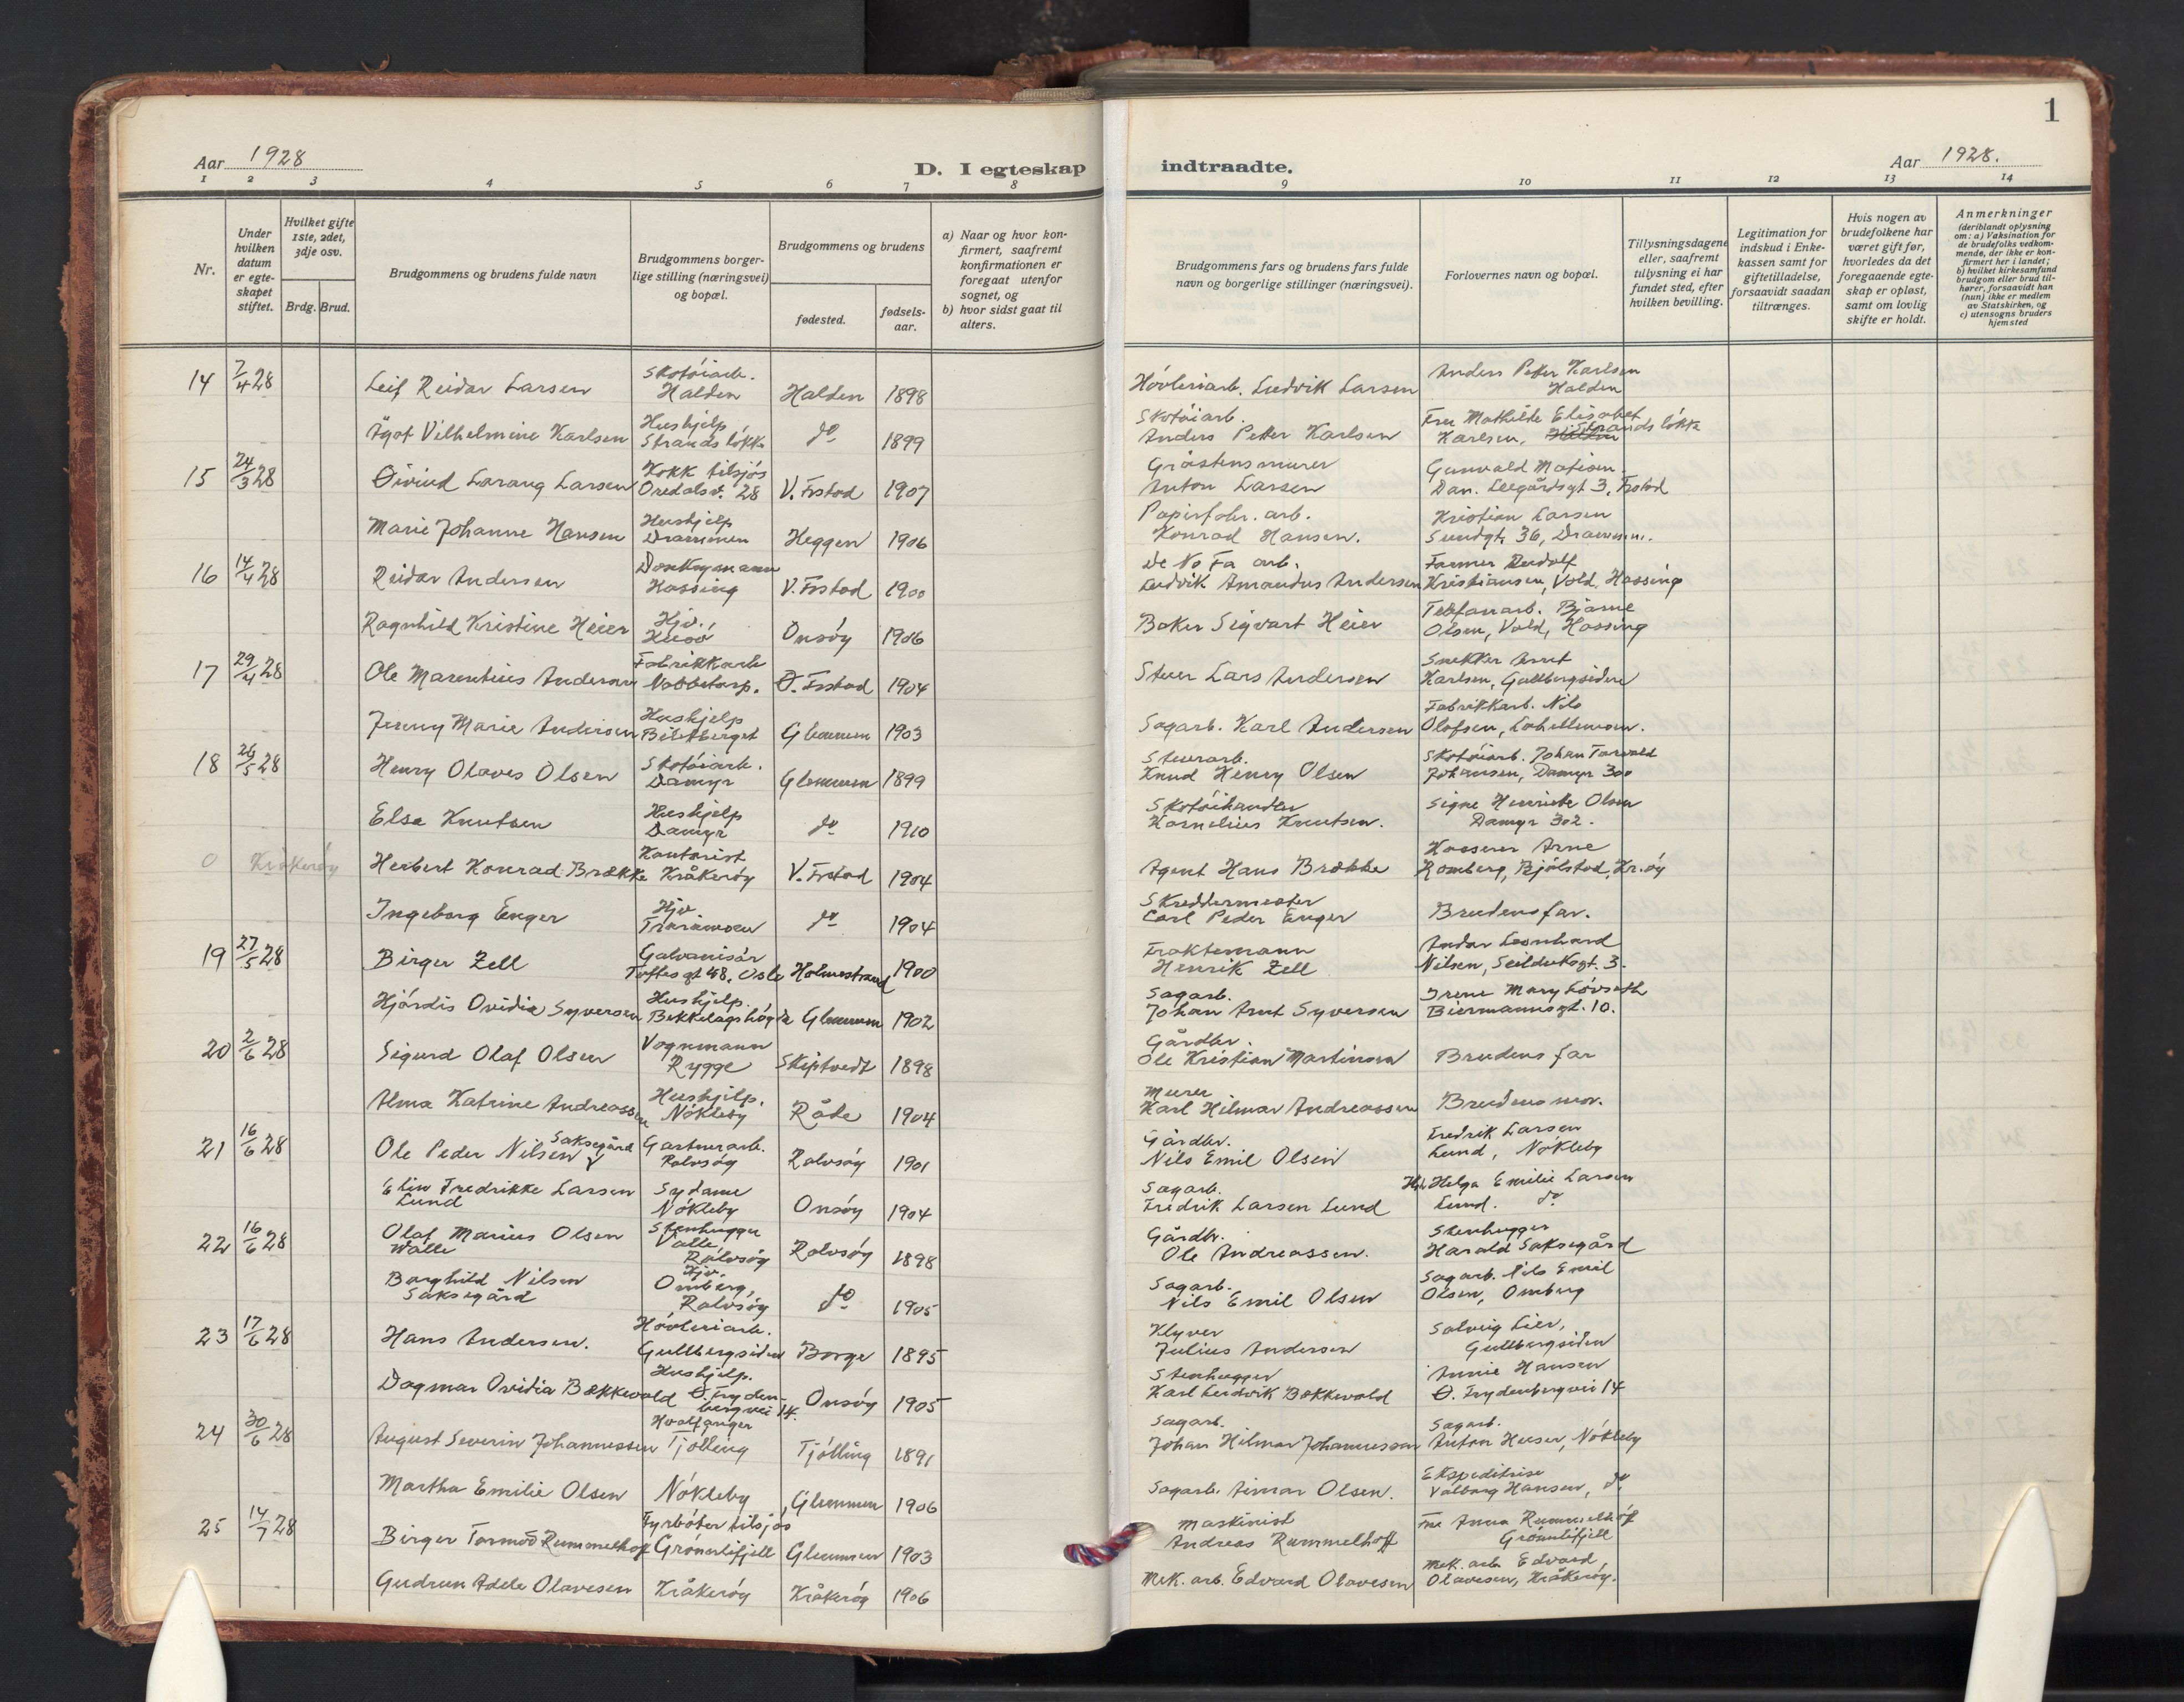 1
Aar 1928
D. I egteskap
indtraadte.
Aar 1928.
1 2 3 4 5 6 7 8 9 10 11 12 13 14
Nr.
Under hvilken datum er egteskapet stiftet.
Hvilket gifte 1ste, 2det, 3dje osv.
Brdg. Brud.
Brudgommens og brudens fulde navn
Brudgommens borgerlige stilling (næringsvei) og bopæl.
Brudgommens og brudens
fødested.
fødselsaar.
a) Naar og hvor konfirmert, saafremt konfirmationen er foregaat utenfor sognet, og
b) hvor sidst gaat til alters.
Brudgommens fars og brudens fars fulde navn og borgerlige stillinger (næringsvei).
Forlovernes navn og bopæl.
Tillysningsdagene eller, saafremt tillysning ei har fundet sted, efter hvilken bevilling.
Legitimation for indskud i Enkekassen samt for giftetilladelse, forsaavidt saadan tiltrænges.
Hvis nogen av brudefolkene har været gift før, hvorledes da det foregaaende egteskap er opløst, samt om lovlig skifte er holdt.
Anmerkninger
(deriblandt oplysning om: a) Vaksination for de brudefolks vedkommende, der ikke er konfirmert her i landet; b) hvilket kirkesamfund brudgom eller brud tilhører, forsaavidt han (hun) ikke er medlem av Statskirken, og c) utensogns bruders hjemsted
14 7/4 28 Leif Reidar Larsen Skotøiarb. Halden Halden 1898 Høvleriarb. Ludvik Larsen Anders Petter Karlsen Halden
Ågot Vilhelmine Karlsen Hushjelp Strands løkke do 1899 Skotøiarb. Anders Petter Karlsen Fru Mathilde Elisabet Karlsen, Strands løkke
15 24/3 28 Øivind Larang Larsen Kokk tilsjøs Oredalsv. 28 V. Frstad 1907 Gråstensmurer Anton Larsen Gunvald Matisen. Dan. Leegårdsgt 3, Frstad
Marie Johanne Hansen Hushjelp Drammen Heggen 1906 Papirfabr. arb. Konrad Hansen. Kristian Larsen Sundgt. 36, Drammen.
16 14/4 28 Reidar Andersen Donkeymann Hassing V. Frstad 1900 De No Fa arb. Ludvik Amandus Andersen Farmer Rudolf Kristiansen, Vold, Hassing
Ragnhild Kristine Heier Hjv. Husö Onsøy 1906 Baker Sigvart Heier Telefonarb. Bjarne Olsen, Vold, Hassing
17 29/4 28 Ole Marentius Andersen Fabrikkarb Nabbetorp. Ø. Frstad 1904 Stuer Lars Andersen Snekker Arnt Karlsen, Gullbergsiden
Jenny Marie Andersen Hushjelp Biletberget Glemmen 1903 Sagarb. Karl Andersen Fabrikkarb. Nils Olafsen, Labellemoen.
18 26/5 28 Henry Olaves Olsen Skotøiarb. Damyr Glemmen 1899 Stuerarb. Knud Henry Olsen Skotøiarb. Johan Torvald Johansen, Damyr 300
Elsa Knutsen Hushjelp Damyr do 1910 Skotøihandler Kornelius Knutsen. Signe Henriette Olsen Damyr 302.
0 Kråkerøy Herbert Konrad Brække Kontorist Kråkerøy V. Frstad 1904 Agent Hans Brække Kasserer Arne Romberg, Bjølstad, Kr.øy
Ingeborg Enger Hjv Traramoen do 1904 Skreddermester Carl Peder Enger Brudens far.
19 27/5 28 Birger Zell Galvanisør Toftesgt 48, Oslo Holmestrand 1900 Fraktemann Henrik Zell Andor Leonhard Nilsen, Seilduksgt. 3.
Hjørdis Ovidia Syversen Hushjelp. Bekkelagshøgda Glemmen 1902 Sagarb. Johan Arnt Syversen Irene Mary Løvseth Biermannsgt. 10.
20 2/6 28 Sigurd Olaf Olsen Vognmann Rygge Skiptvedt 1898 Gårdbr. Ole Kristian Martinsen Brudens far
Alma Katrine Andreassen Hushjelp. Nøkleby Råde 1904 Murer Karl Hilmar Andreassen Brudens mor.
21 16/6 28 Ole Peder Nilsen Saksegård Gartnerarb. Rolvsøy Rolvsøy 1901 Gårdbr. Nils Emil Olsen Fredrik Larsen Lund, Nøkleby
Elin Fredrikke Larsen Lund Sydame Nøkleby Onsøy 1904 Sagarb. Fredrik Larsen Lund Hjv. Helga Emilie Larsen Lund. do
22 16/6 28 Olaf Marius Olsen Walle Stenhugger Valle, Rolvsøy Rolvsøy 1898 Gårdbr. Ole Andreassen. Stenhugger Harald Saksegård
Borghild Nilsen Saksegård Hjv. Omberg, Rolvsøy do 1905 Sagarb. Nils Emil Olsen Sagarb. Nils Emil Olsen, Omberg
23 17/6 28 Hans Andersen. Høvleriarb. Gullbergsiden Borge 1895 Klyver Julius Andersen Solveig Lier, Gullbergsiden
Dagmar Ovidia Bækkevold Hushjelp. Ø. Frydenbergvei 14. Onsøy 1905 Stenhugger Karl Ludvik Bækkevold Annie Hansen Ø. Frydenbergvei 14
24 30/6 28 August Severin Johannessen Hvalfanger Tjølling Tjølling 1891 Sagarb. Johan Hilmar Johannessen Sagarb. Anton Huser, Nøkleby
Martha Emilie Olsen Nøkleby Glemmen 1906 Sagarb. Aimar Olsen. Ekspeditrise Valborg Hansen, do
25 14/7 28 Birger Tormod Rummelhoff Fyrbøter tilsjøs Grønlifjell Glemmen 1903 Maskinist Andreas Rummelhoff Fru Anna Rummelhoff Grønlifjell
Gudrun Adele Olavesen Kråkerøy Kråkerøy 1906 Mek. arb. Edvard Olavesen Mek. arb Edvard Olavesen, Kråkerøy.